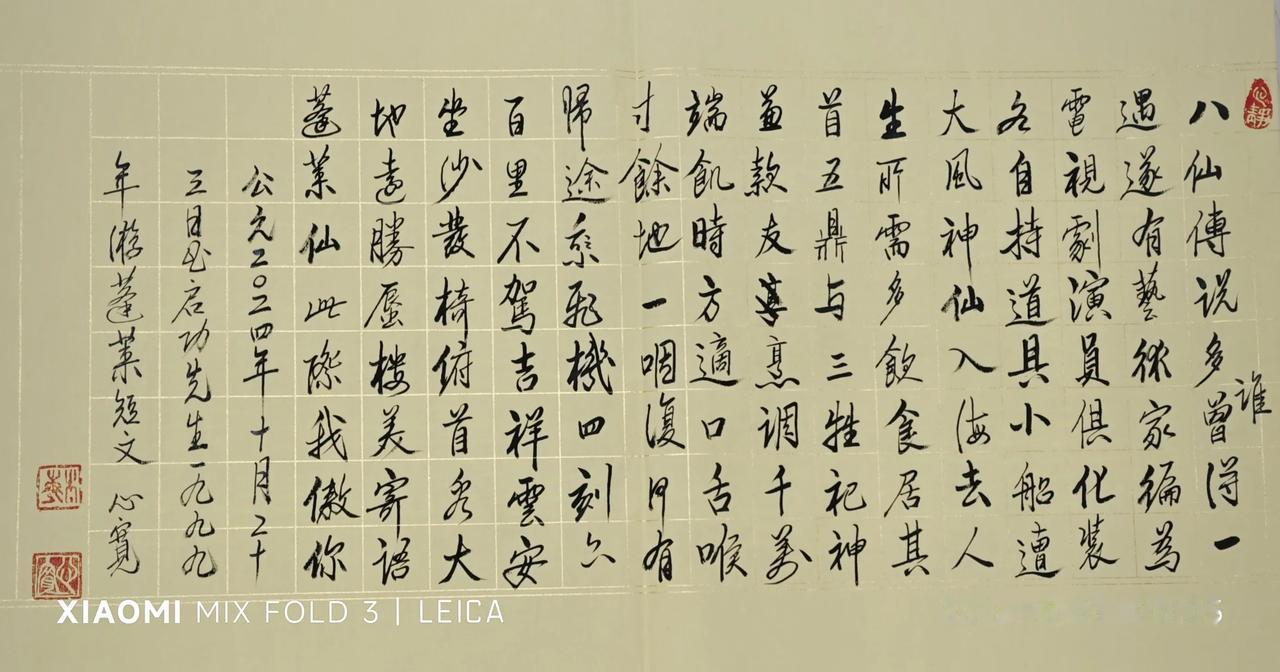 八仙傳说多曾得一
誰
遇遂有藝術家編為
電視劇演員俱化裝
各自持道具小船遭
大風神仙入海去人
生所需多飲食居其
首五鼎与三牲祀神
兼款友烹調千萬
端飢時方適口舌喉
寸餘地一咽復何有
歸途乘飛機四刻六
百里不駕吉祥雲安
坐沙發椅俯首看大
地遠勝蜃楼美寄語
蓬莱仙此際我傲你
公元二〇二四年十月二十
三日书启功先生一九九九
年游蓬莱短文 心寬
心静
心寬
XIAOMI MIX FOLD 3 | LEICA